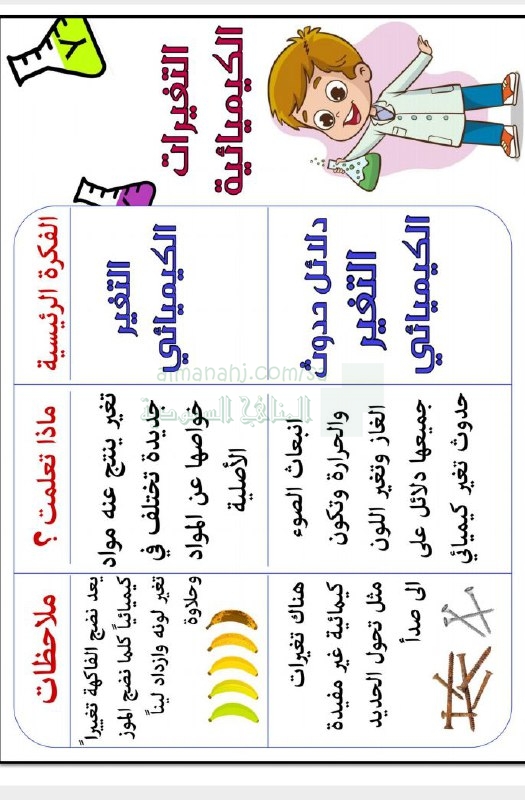 التغيرات
الكيميائية
الفكرة الرئيسية
ماذا تعلمت ؟
ملاحظات
التغير
الكيميائي
تغير ينتج عنه مواد
جديدة تختلف في
خواصها عن المواد
الأصلية
يعد نضج الفاكهة تغييراً
كيميائياً كلما نضج الموز
تغير لونه وازداد ليناً
وحلاوة
دلائل حدوث
التغير
الكيميائي
انبعاث الضوء
والحرارة وتكون
الغاز وتغير اللون
جميعها دلائل على
حدوث تغير كيميائي
هناك تغيرات
كيمائية غير مفيدة
مثل تحول الحديد
الى صدأ
almanahj.com/sa
المناهج السعودية